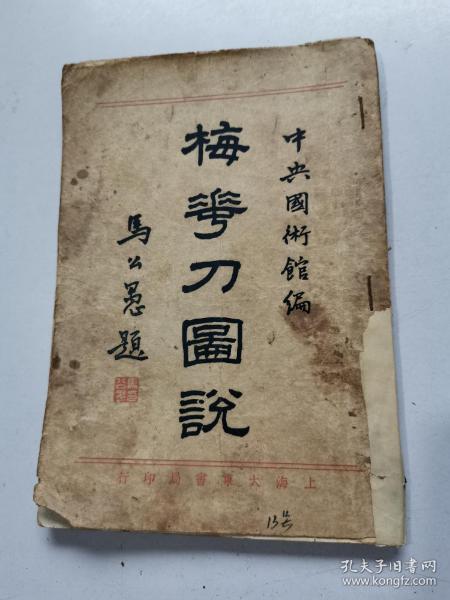 中央國術館編
梅花刀圖說
馬公愚題
上海大東書局印行
孔夫子旧书网
www.kongfz.com